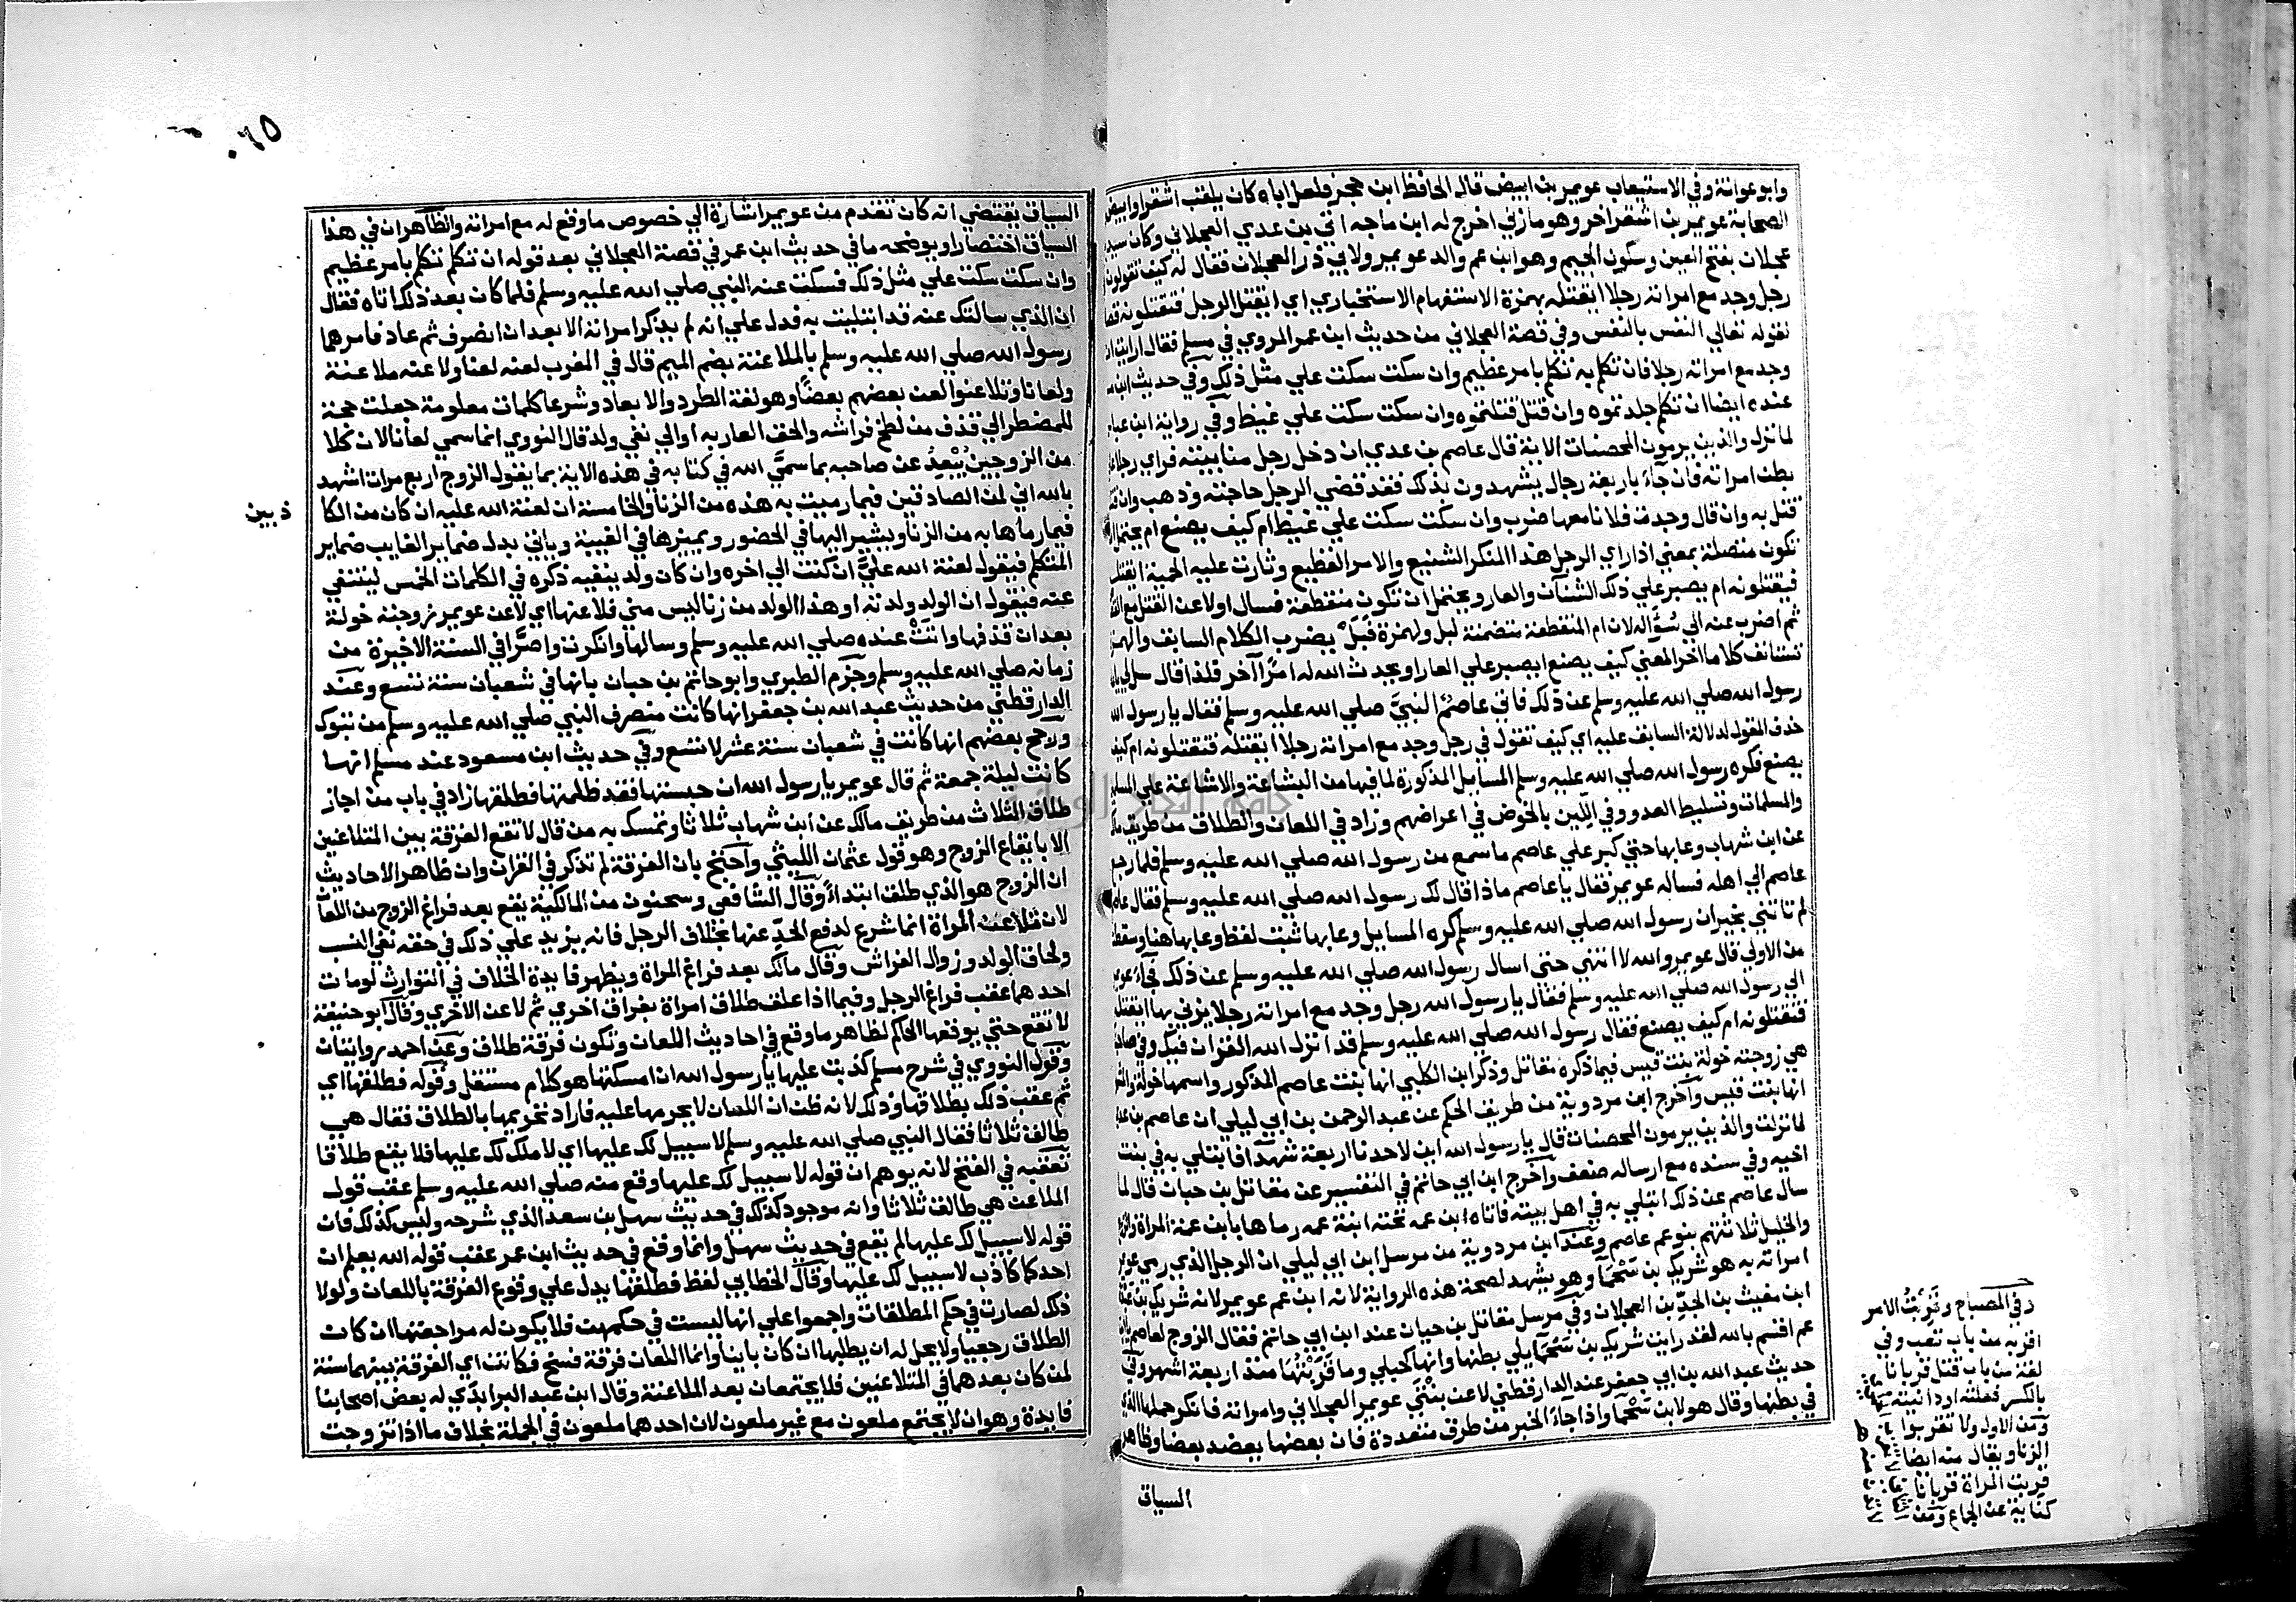 وابو عوانة وفي الاستيعاب عويمر بن ابيض قال الحافظ ابن حجر فلعل اباه كان يلقب اشقر او ابيض
الصحابة عويمر بن اشقر اخر وهو مازني اخرج له ابن ماجه اتي بن عدي العجلاني وكان سيد
عجلان بفتح العين وسكون الجيم وهو ابن عم والد عويمر ولابي ذر العجلان فقال له كيف تقولون
رجل وجد مع امراته رجلا ايقتله بهمزة الاستفهام الاستخباري اي ايقتل الرجل فتقتلونه
لقوله تعالي النفس بالنفس وفي قصة العجلاني من حديث ابن عمر المروي في مسلم فقال ارايت ان
وجد مع امراته رجلا فان تكلم به تكلم بامر عظيم وان سكت سكت علي مثل ذلك وفي حديث ابن
عنده ايضا ان تكلم جلدتموه وان قتل قتلتموه وان سكت سكت علي غيظ وفي رواية ابن
لما نزل والذين يرمون المحصنات الاية قال عاصم بن عدي ان دخل رجل منا بيته فراي رجلا
بطن امراته فان جآء باربعة رجال يشهدون بذلك فقد قضي الرجل حاجته وذهب وان
قتل به وان قال وجدت فلانا معها ضرب وان سكت سكت علي غيظ ام كيف يصنع ام يحتمل
تكون متصلة بمعني اذا راي الرجل هذا المنكر الشنيع والامر الفظيع وثارت عليه الحمية ايقتل
فيقتلونه ام يصبر علي ذلك الشنآن والعار ويحتمل ان تكون منقطعة فسال اولا عن القتل مع
ثم اضرب عنه الي سؤاله لان ام المنقطعة متضمنة لبل والهمزة فبل يضرب الكلام السابق والهمزة
تستانف كلاما اخر المعني كيف يصنع ايصبر علي العار او يحدث الله له امرًا آخر فلذا قال سل لي يا
رسول الله صلي الله عليه وسلم عن ذلك فاتي عاصمٌ النبيَّ صلي الله عليه وسلم فقال يا رسول الله
حذف المقول لدلالة السابق عليه اي كيف تقول في رجل وجد مع امراته رجلا ايقتله فتقتلونه ام كيف
يصنع فكره رسول الله صلي الله عليه وسلم المسايل المذكورة لما فيها من البشاعة والاشاعة علي
والمسلمات وتسليط العدو في الدين بالخوض في اعراضهم وزاد في اللعان والطلاق من طريق
عن ابن شهاب وعابها حتي كبر علي عاصم ما سمع من رسول الله صلي الله عليه وسلم فلما رجع
عاصم الي اهله فساله عويمر فقال يا عاصم ماذا قال لك رسول الله صلي الله عليه وسلم فقال
لم تاتني بخير ان رسول الله صلي الله عليه وسلم كره المسايل وعابها ثبت لفظ وعابها هنا وسقط
من الاولي قال عويمر والله لا انتهي حتي اسال رسول الله صلي الله عليه وسلم عن ذلك فجآء
الي رسول الله صلي الله عليه وسلم فقال يا رسول الله رجل وجد مع امراته رجلا يزني بها ايقتله
فتقتلونه ام كيف يصنع فقال رسول الله صلي الله عليه وسلم قد انزل الله القران فيك وفي
هي زوجته خولة بنت قيس فيما ذكره مقاتل وذكر ابن الكلبي انها بنت عاصم المذكور واسمها خولة
انها بنت قيس واخرج ابن مردوية من طريق الحكم عن عبد الرحمن بن ابي ليلي ان عاصم بن
لما نزلت والذين يرمون المحصنات قال يا رسول الله اين لاحدنا اربعة شهدآ فابتلي به في بنت
اخيه وفي سنده مع ارساله ضعف واخرج ابن ابي حاتم في التفسير عن مقاتل بن حيان قال لما
سال عاصم عن ذلك ابتلي به في اهل بيته فاتاه ابن عمه تحته ابنة عمه رماها بابن عمه المراة
والخليل ثلاثتهم بنو عم عاصم وعند ابن مردوية من مرسل ابن ابي ليلي ان الرجل الذي رمي
امراته به هو شريك بن سَحْما وهو يشهد لصحة هذه الرواية لانه ابن عم عويمر لانه شريك بن
ابن مغيث بن الجدِّ بن العجلان وفي مرسل مقاتل بن حيان عند ابن ابي حاتم فقال الزوج لعاصم
عم اقسم بالله لقد رايت شريك بن سَحْمآ يلي بطنها وانها لحبلي وما قَرَبْتُهَا منذ اربعة اشهر وفي
حديث عبد الله بن ابي جعفر عند الدارقطني لاعن بين عويمر العجلاني وامراته فانكر حملها الذي
في بطنها وقال هو لابن سَحْما واذا جاء الخبر من طرق متعددة فان بعضها يعضد بعضا وظاهر
السياق
وفي المصباح وقَرِبْتُ الامر
اقربه من باب تعب وفي
لغة من باب قتل قربانا
بالكسر فعلته او دانيته
ومن الاول ولا تقربوا
الزنا ويقال منه ايضا
قربت المراة قربانا
كناية عن الجماع ومن
٠٦٥
السياق يقتضي انه كان تقدم من عويمر اشارة الي خصوص ما وقع له مع امراته والظاهر ان في هذا
السياق اختصارا ويوضحه ما في حديث ابن عمر في قصة العجلاني بعد قوله ان تكلم تكلم بامر عظيم
وان سكت سكت علي مثل ذلك فسكت عنه النبي صلي الله عليه وسلم فلما كان بعد ذلك اتاه فقال
ان الذي سالتك عنه قد ابتليت به فدل علي انه لم يذكر امراته الا بعد ان انصرف ثم عاد فامرهما
رسول الله صلي الله عليه وسلم بالملاعنة بضم الميم قال في المغرب لعنه لعنا ولاعنه ملاعنة
ولعانا وتلاعنوا لعن بعضهم بعضًا وهو لغة الطرد والابعاد وشرعا كلمات معلومة جعلت حجة
للمضطر الي قذف من لطخ فراشه والحق العار به او الي نفي ولد قال النووي انما سمي لعانا لان كلا
من الزوجين يُبْعِدُ عن صاحبه بما سمَّي الله في كتابه في هذه الاية بما يقول الزوج اربع مرات اشهد
بالله اني لمن الصادقين فيما رميت به هذه من الزنا والخامسة ان لعنة الله عليه ان كان من الكا
ذبين
فيما رماها به من الزنا ويشير اليها في الحضور ويميزها في الغيبة وياتي بدل ضماير الغايب ضماير
المتكلم فيقول لعنة الله عليَّ ان كنت الي اخره وان كان ولد ينفيه ذكره في الكلمات الخمس لينتفي
عنه فيقول ان الولد ولدته او هذا الولد من زنا ليس مني فلاعنها اي لاعن عويمر زوجته خولة
بعد ان قذفها واتت عنده صلي الله عليه وسلم وسالها وانكرت واصرَّا في السنة الاخيرة من
زمانه صلي الله عليه وسلم وجزم الطبري وابو حاتم بن حبان بانها في شعبان سنة تسع وعند
الدارقطني من حديث عبد الله بن جعفر انها كانت منصرف النبي صلي الله عليه وسلم من تبوك
ورجح بعضهم انها كانت في شعبان سنة عشر لا تسع وفي حديث ابن مسعود عند مسلم انها
كانت ليلة جمعة ثم قال عويمر يا رسول الله ان حبستها فقد ظلمتها فطلقها زاد في باب من اجاز
طلاق الثلاث من طريق مالك عن ابن شهاب ثلاثا وتمسك به من قال لا تقع الفرقة بين المتلاعنين
الا بايقاع الزوج وهو قول عثمان الليثي واحتج بان الفرقة لم تذكر في القران وان ظاهر الاحاديث
ان الزوج هو الذي طلق ابتداءً وقال الشافعي وسحنون من المالكية يقع بعد فراغ الزوج من اللعان
لان تلاعن المراة انما شرع لدفع الحدِّ عنها بخلاف الرجل فانه يزيد علي ذلك في حقه نفي النسب
ولحاق الولد وزوال الفراش وقال مالك بعد فراغ المراة ويظهر فايدة الخلاف في التوارث لو مات
احدهما عقب فراغ الرجل وفيما اذا علق طلاق امراة بفراق اخري ثم لاعن الاخري وقال ابو حنيفة
لا تقع حتي يوقعها الحاكم لظاهر ما وقع في احاديث اللعان وتكون فرقة طلاق وعن احمد روايتان
وقول النووي في شرح مسلم كذبت عليها يا رسول الله ان امسكتها هو كلام مستقل وقوله فطلقها اي
ثم عقب ذلك بطلاقها وذلك لانه ظن ان اللعان لا يحرمها عليه فاراد تحريمها بالطلاق فقال هي
طالق ثلاثا فقال النبي صلي الله عليه وسلم لا سبيل لك عليها اي لا ملك لك عليها فلا يقع طلاقا
تعقبه في الفتح لانه يوهم ان قوله لا سبيل لك عليها وقع منه صلي الله عليه وسلم عقب قول
الملاعن هي طالق ثلاثا وانه موجود كذلك في حديث سهل بن سعد الذي شرحه وليس كذلك فان
قوله لا سبيل لك عليها لم يقع في حديث سهل وانما وقع في حديث ابن عمر عقب قوله الله يعلم ان
احدكما كاذب لا سبيل لك عليها وقال الخطابي لفظ فطلقها يدل علي وقوع الفرقة باللعان ولولا
ذلك لصارت في حكم المطلقات واجمعوا علي انها ليست في حكمهن فلا يكون له مراجعتها ان كان
الطلاق رجعيا ولا يحل له ان يطلبها ان كان باينا وانما اللعان فرقة فسخ فكانت اي الفرقة بينهما سنة
لمن كان بعدهما في المتلاعنين فلا يجتمعان بعد الملاعنة وقال ابن عبد البر ابدَي له بعض اصحابنا
فايدة وهو ان لا يجتمع ملعون مع غير ملعون لان احدهما ملعون في الجملة بخلاف ما اذا تزوجت